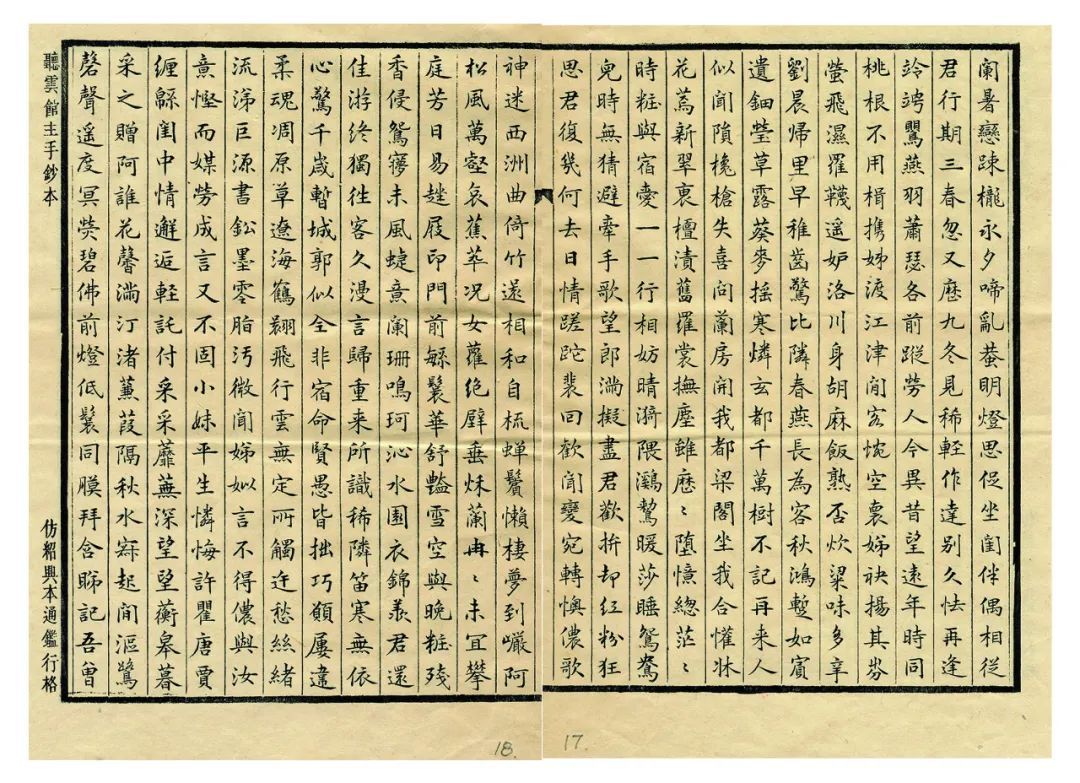 闌暑戀踈櫳永夕啼亂蛬明燈思促坐閨伴偶相從
君行期三春忽又歷九冬見稀輕作達別久怯再逢
竛竮鸎燕羽蕭瑟各前蹤勞人今異昔望遠年時同
桃根不用楫攜姊渡江津閒客惋空裏姊袂揚其芬
螢飛濕羅韈遥妒洛川身胡麻飯熟否炊粱味多辛
劉晨歸里早稚齒驚比隣春燕長為客秋鴻蹔如賓
遺鈿瑩草露葵麥摇寒憐玄都千萬樹不記再来人
似聞隕欃槍失喜問蘭房開我都梁閣坐我合懽牀
花蔫新翠裛檀漬舊羅裳撫塵雖歷〻墮憶緫茫〻
時粧與宿愛一一行相妨晴漪隈鸂鶒暖莎睡鴛鴦
兒時無猜避牽手歌望郎滿擬盡君歡拚却紅粉狂
思君復幾何去日情蹉跎裴回歡聞變宛轉懊儂歌
神迷西洲曲倚竹還相和自梳蟬鬢懶棲夢到巖阿
松風萬壑哀蕉萃況女蘿絶壁垂秌蘭冉〻未冝攀
庭芳日易趖屐印門前緐鬟華舒豔雪空與晚粧殘
香侵鴛寢未風蜨意闌珊鳴珂沁水園衣錦羨君還
佳游終獨徃客久漫言歸重来所識稀隣笛寒無依
心驚千歲暫城郭似全非宿命賢愚皆拙巧顧屢違
柔魂凋原草遼海鶴翾飛行雲無定所觸迕愁絲緒
流涕巨源書鈆墨零脂汚微聞娣姒言不得儂與汝
意慳而媒勞成言又不固小妹平生憐悔許瞿唐賈
纏緜閨中情邂逅輕託付采采蘼蕪深望望蘅皋暮
采之贈阿誰花馨滿汀渚蒹葭隔秋水寤起閒漚鷺
磬聲遥度冥熒碧佛前燈低鬟同膜拜含睇記吾曾
聽雲館主手鈔本
仿紹興本通鑑行格
18.
17.